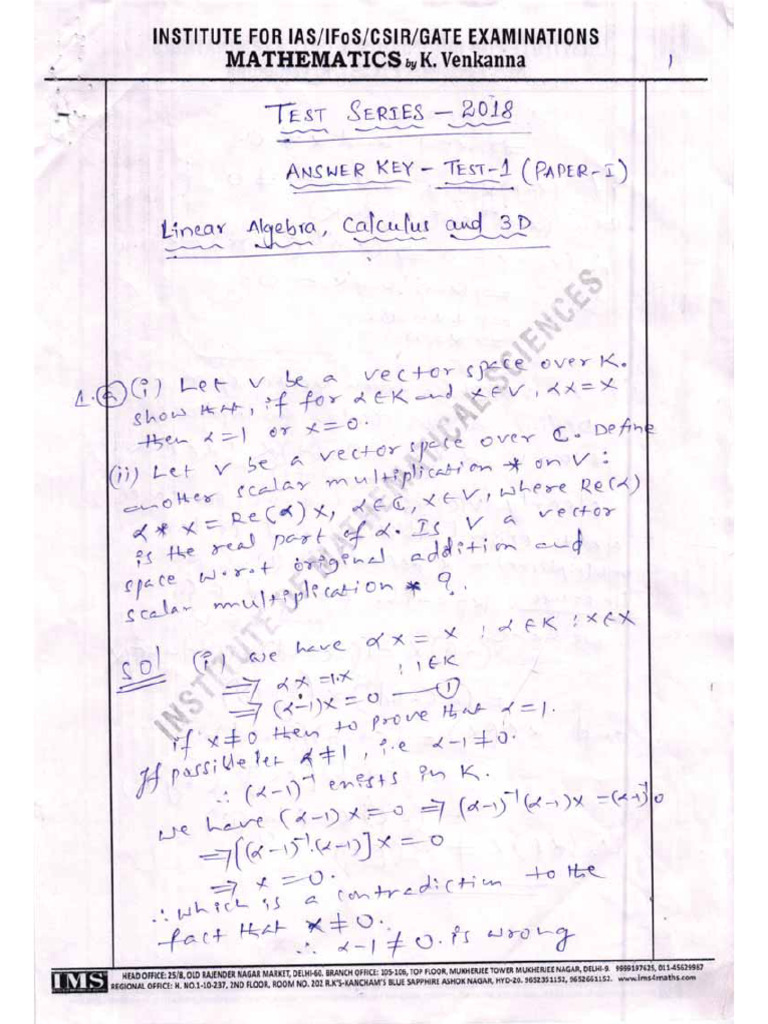 INSTITUTE FOR IAS/IFoS/CSIR/GATE EXAMINATIONS
MATHEMATICS by K. Venkanna
1
TEST SERIES - 2018
ANSWER KEY - TEST-1 (PAPER-I)
Linear Algebra, Calculus and 3D
INSTITUTE OF MATHEMATICAL SCIENCES
1. (a) (i) Let V be a vector space over K.
show that, if for α∈K and x∈V, αx=x
then α=1 or x=0.
(ii) Let V be a vector space over ℂ. Define
another scalar multiplication * on V:
α * x = Re(α) x, α∈ℂ, x∈V, where Re(α)
is the real part of α. Is V a vector
space w.r.t original addition and
scalar multiplication * ?.
Sol (i we have αx = x ; α∈K ; x∈X
⇒ αx = 1.x ; 1∈K
⇒ (α-1)x = 0 — (1)
if x≠0 then to prove that α=1.
If possible let α≠1, i.e α-1≠0.
∴ (α-1)⁻¹ exists in K.
we have (α-1)x=0 ⇒ (α-1)⁻¹(α-1)x = (α-1)⁻¹0
⇒ [(α-1)⁻¹.(α-1)]x = 0
⇒ x=0.
∴ which is a contradiction to the
fact that x≠0.
∴ α-1≠0. is wrong
IMS
HEAD OFFICE: 25/8, OLD RAJENDER NAGAR MARKET, DELHI-60. BRANCH OFFICE: 105-106, TOP FLOOR, MUKHERJEE TOWER MUKHERJEE NAGAR, DELHI-9. 9999197625, 011-45629987
REGIONAL OFFICE: H. NO.1-10-237, 2ND FLOOR, ROOM NO. 202 R.K'S-KANCHAM'S BLUE SAPPHIRE ASHOK NAGAR, HYD-20. 9652351152, 9652661152. www.ims4maths.com